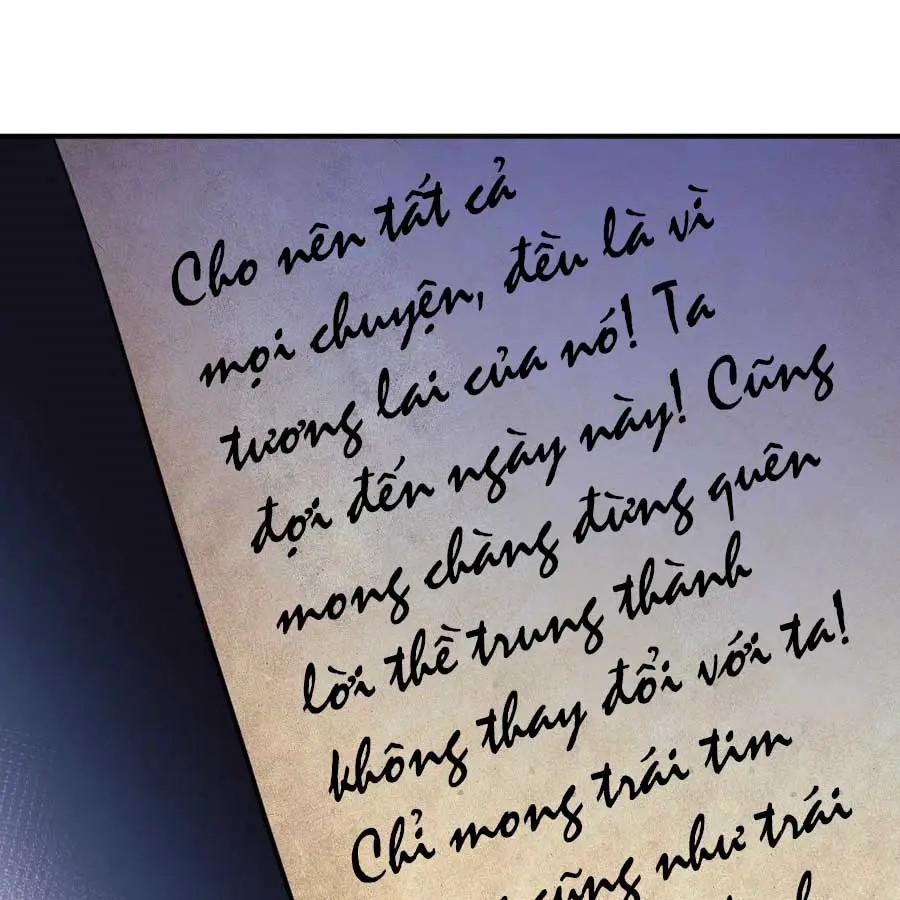 Cho nên tất cả
mọi chuyện, đều là vì
tương lai của nó! Ta
đợi đến ngày này! Cũng
mong chàng đừng quên
lời thề trung thành
không thay đổi với ta!
Chỉ mong trái tim
cũng như trái